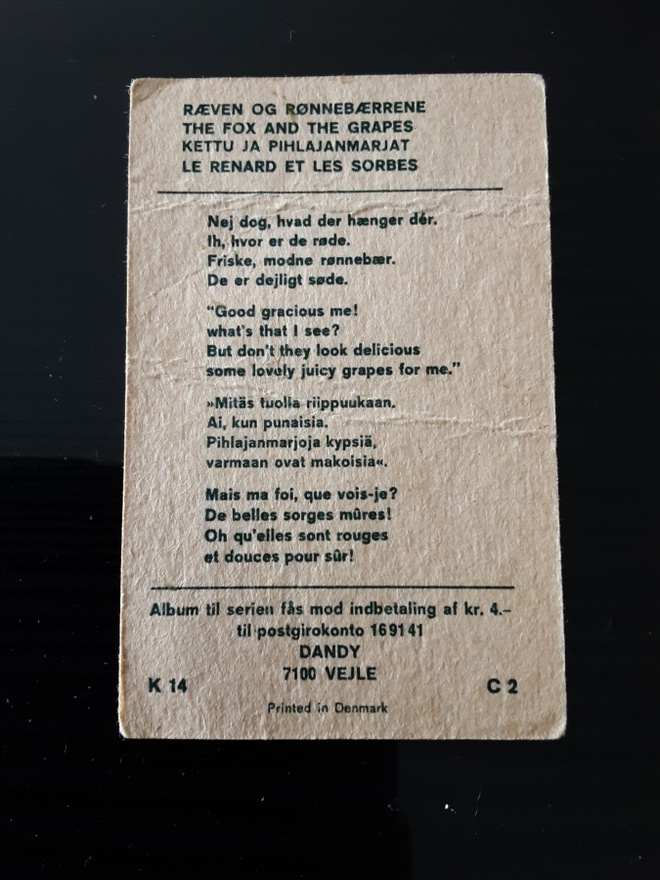 RÆVEN OG RØNNEBÆRRENE
THE FOX AND THE GRAPES
KETTU JA PIHLAJANMARJAT
LE RENARD ET LES SORBES
Nej dog, hvad der hænger dér.
Ih, hvor er de røde.
Friske, modne rønnebær.
De er dejligt søde.
"Good gracious me!
what's that I see?
But don't they look delicious
some lovely juicy grapes for me."
»Mitäs tuolla riippuukaan.
Ai, kun punaisia.
Pihlajanmarjoja kypsiä,
varmaan ovat makoisia«.
Mais ma foi, que vois-je?
De belles sorges mûres!
Oh qu'elles sont rouges
et douces pour sûr!
Album til serien fås mod indbetaling af kr. 4.–
til postgirokonto 169141
DANDY
7100 VEJLE
K 14 C 2
Printed in Denmark